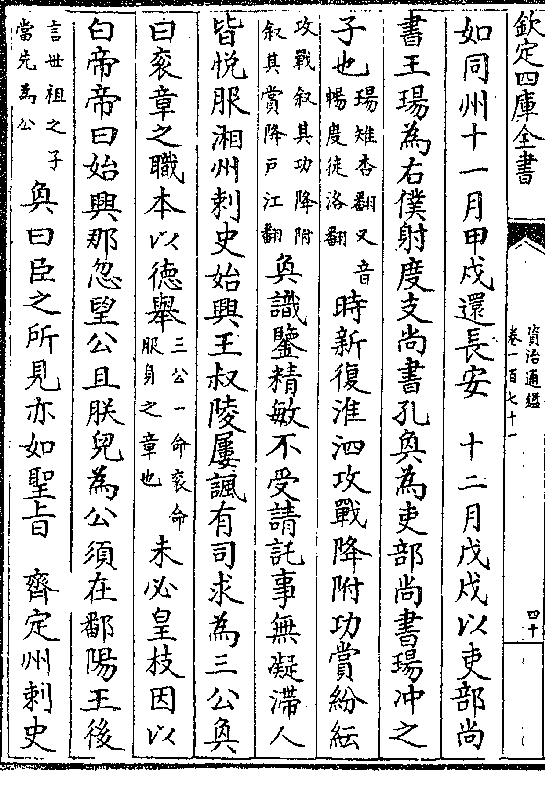 欽定四庫全書
資治通鑑
卷一百七十一
四十
如同州十一月甲戌還長安　十二月戊戌以吏部尚
書王瑒為右僕射度支尚書孔奐為吏部尚書瑒冲之
子也
瑒雉杏翻又音
暢度徒洛翻
時新復淮泗攻戰降附功賞紛紜
攻戰叙其功降附
叙其賞降戶江翻
奐識鑒精敏不受請託事無凝滯人
皆悦服湘州刺史始興王叔陵屢諷有司求為三公奐
曰衮章之職本以德舉
三公一命衮命
服身之章也
未必皇枝因以
白帝帝曰始興那忽望公且朕兒為公須在鄱陽王後
言世祖之子
當先為公
奐曰臣之所見亦如聖旨　齊定州刺史